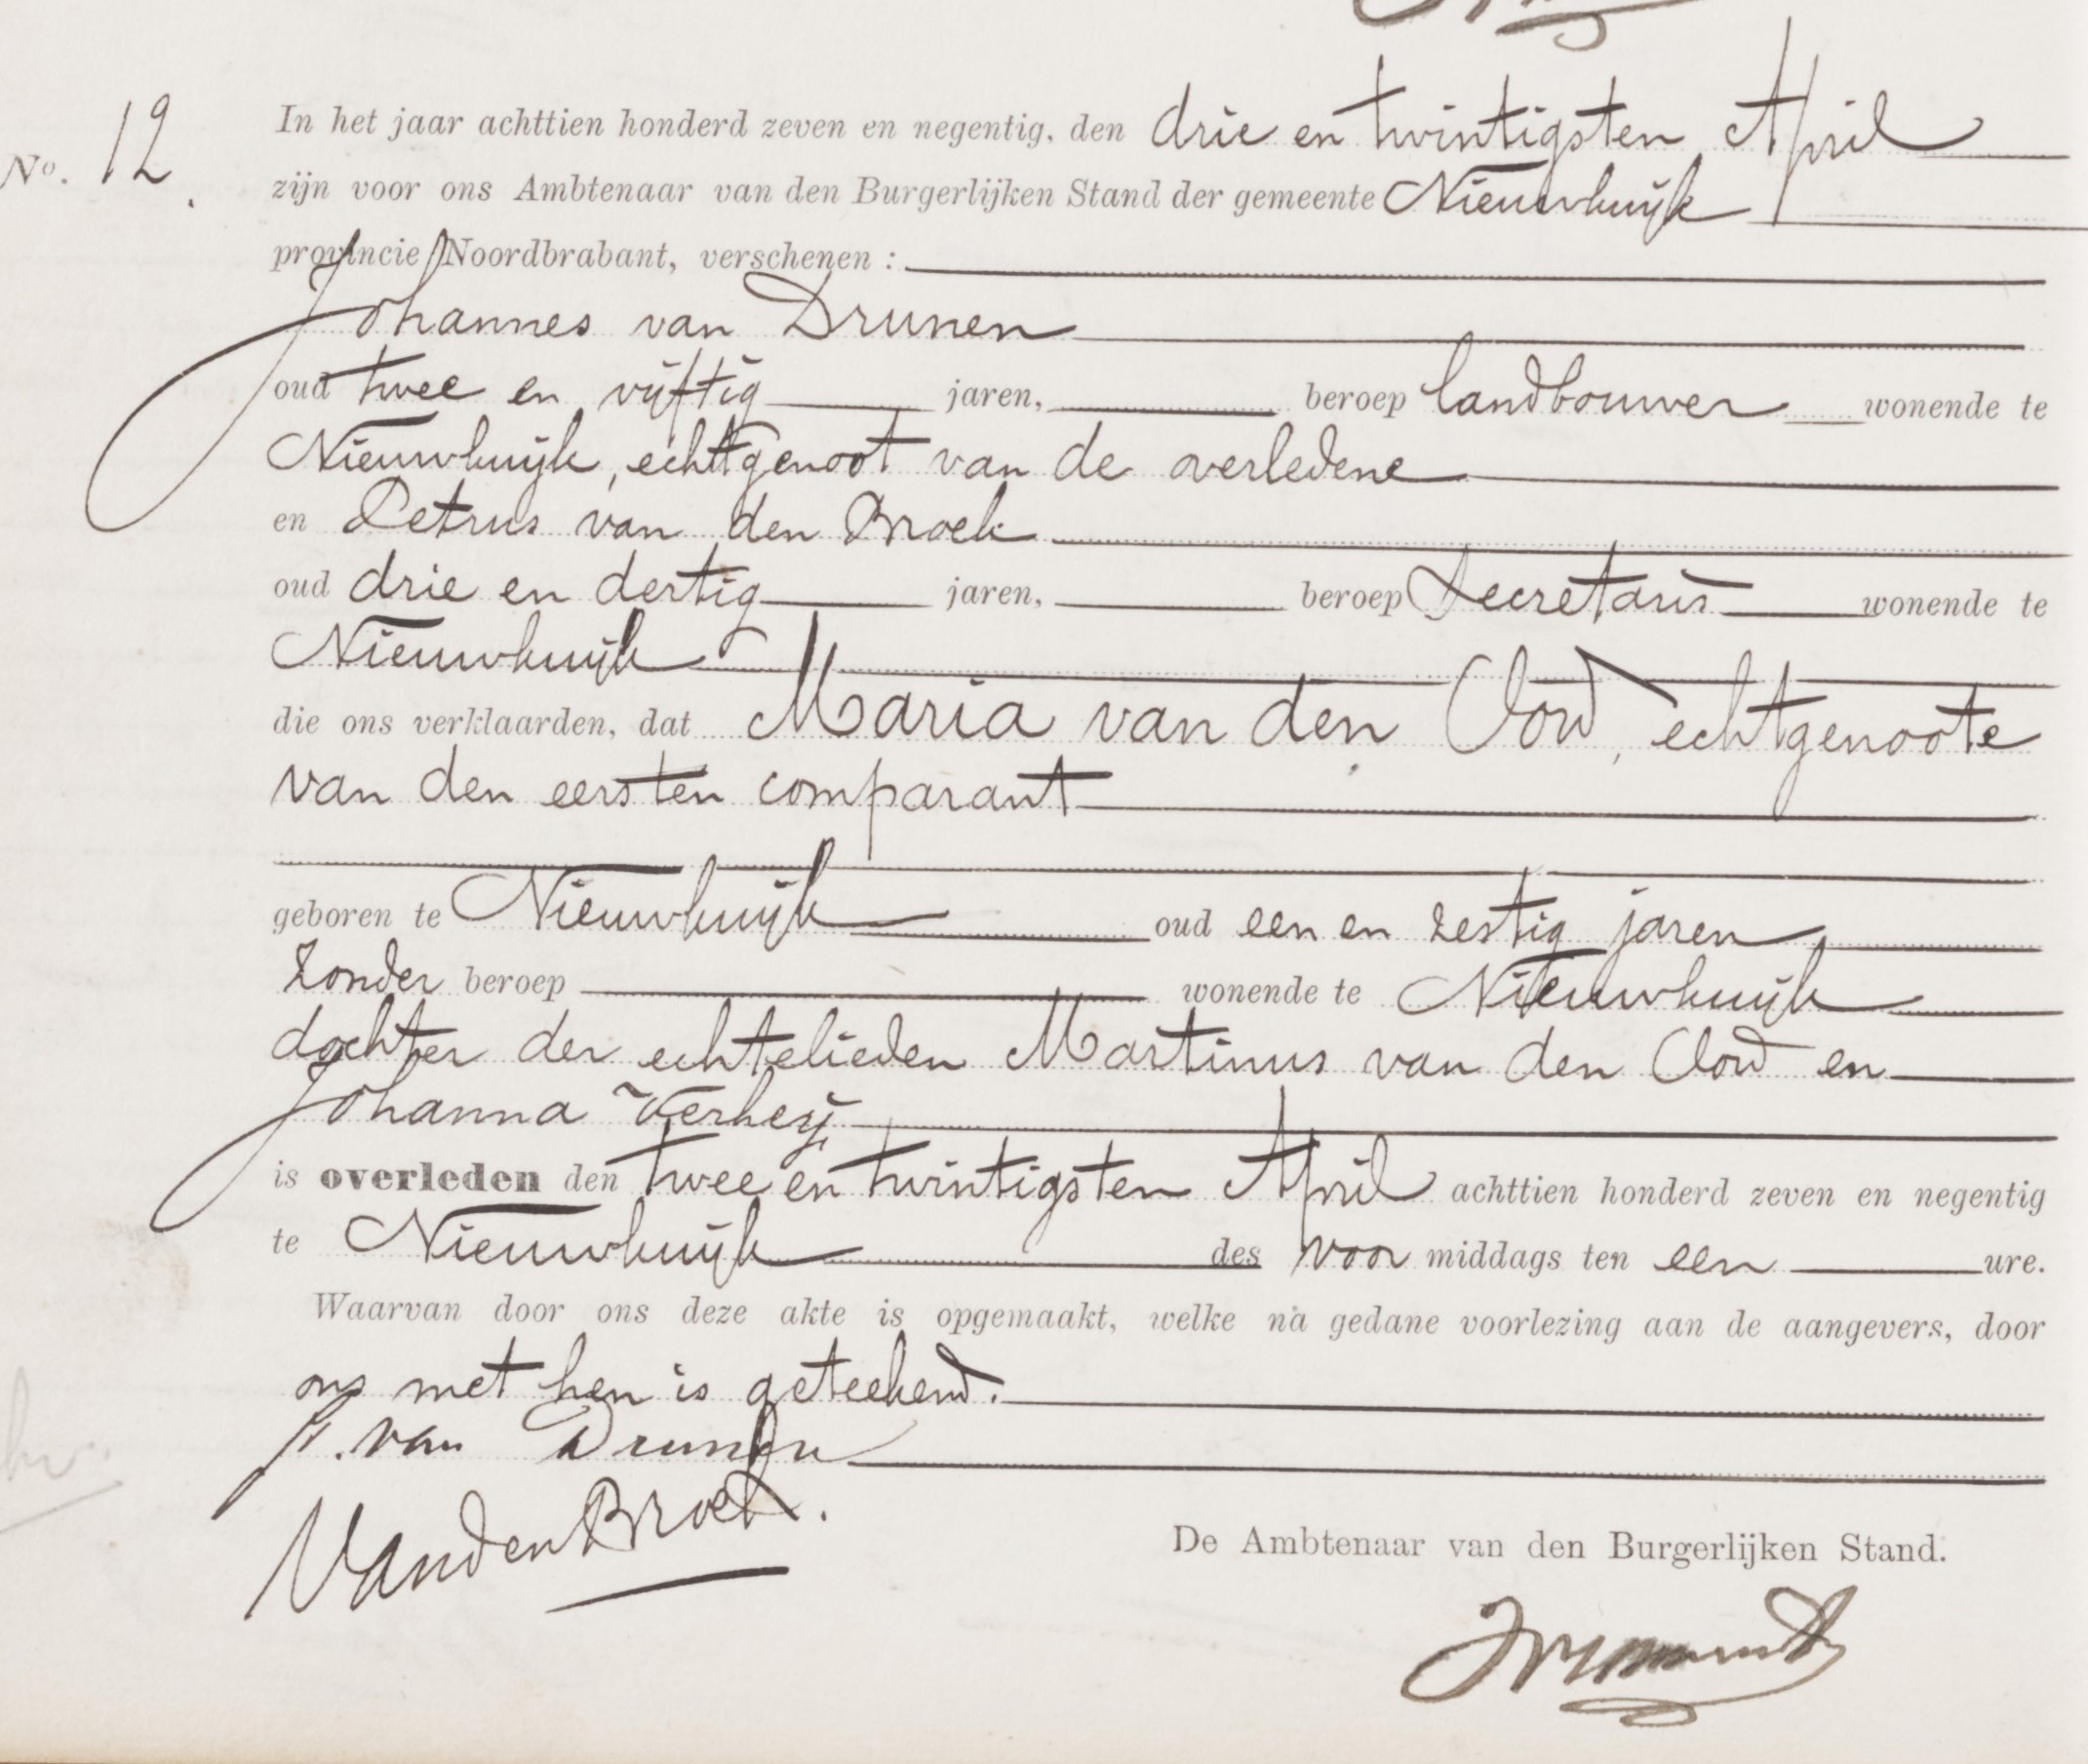 No. 12.
In het jaar achttien honderd zeven en negentig, den drie en twintigsten April
zijn voor ons Ambtenaar van den Burgerlijken Stand der gemeente Nieuwkuijk
provincie Noordbrabant, verschenen :
Johannes van Drunen
oud twee en vijftig jaren, beroep landbouwer wonende te
Nieuwkuijk, echtgenoot van de overledene
en Petrus van den Broek
oud drie en dertig jaren, beroep Secretaris wonende te
Nieuwkuijk
die ons verklaarden, dat Maria van den Oord, echtgenoote
van den eersten comparant
geboren te Nieuwkuijk oud een en zestig jaren
zonder beroep wonende te Nieuwkuijk
dochter der echtelieden Martinus van den Oord en
Johanna Verheij
is overleden den twee en twintigsten April achttien honderd zeven en negentig
te Nieuwkuijk des voor middags ten een ure.
Waarvan door ons deze akte is opgemaakt, welke na gedane voorlezing aan de aangevers, door
ons met hen is geteekend.
J. van Drunen
VandenBroek.
De Ambtenaar van den Burgerlijken Stand.